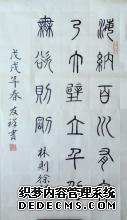 海納百川有容
乃大壁立千仞
無欲則剛 林則徐
戊戌年春 書